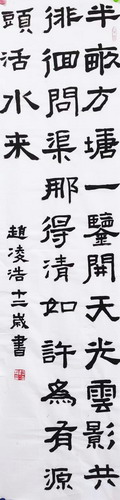 半畝方塘一鑒開天光雲影共
徘徊問渠那得清如許為有源
頭活水来
趙凌浩十二歲書